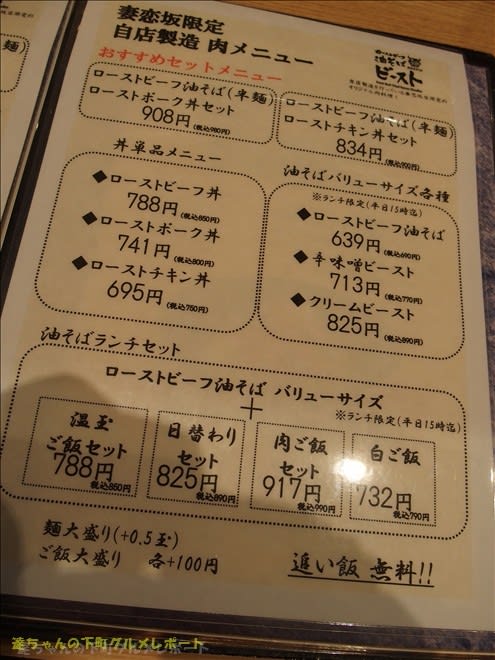 妻恋坂限定
自店製造 肉メニュー
油そば
ビースト
おすすめセットメニュー
ローストビーフ油そば(半麺)
ローストポーク丼セット
908円(税込980円)
ローストビーフ油そば(半麺)
ローストチキン丼セット
834円(税込900円)
丼単品メニュー
◆ローストビーフ丼
788円(税込850円)
◆ローストポーク丼
741円(税込800円)
◆ローストチキン丼
695円(税込750円)
油そばバリューサイズ各種
※ランチ限定(平日15時迄)
◆ローストビーフ油そば
639円(税込690円)
◆辛味噌ビースト
713円(税込770円)
◆クリームビースト
825円(税込890円)
油そばランチセット
ローストビーフ油そば バリューサイズ
+
※ランチ限定(平日15時迄)
温玉
ご飯セット
788円
税込850円
日替わり
セット
825円
税込890円
肉ご飯
セット
917円
税込990円
白ご飯
732円
税込790円
麺大盛り(+0.5玉)
ご飯大盛り 各+100円
追い飯 無料!!
達ちゃんの下町グルメレポート